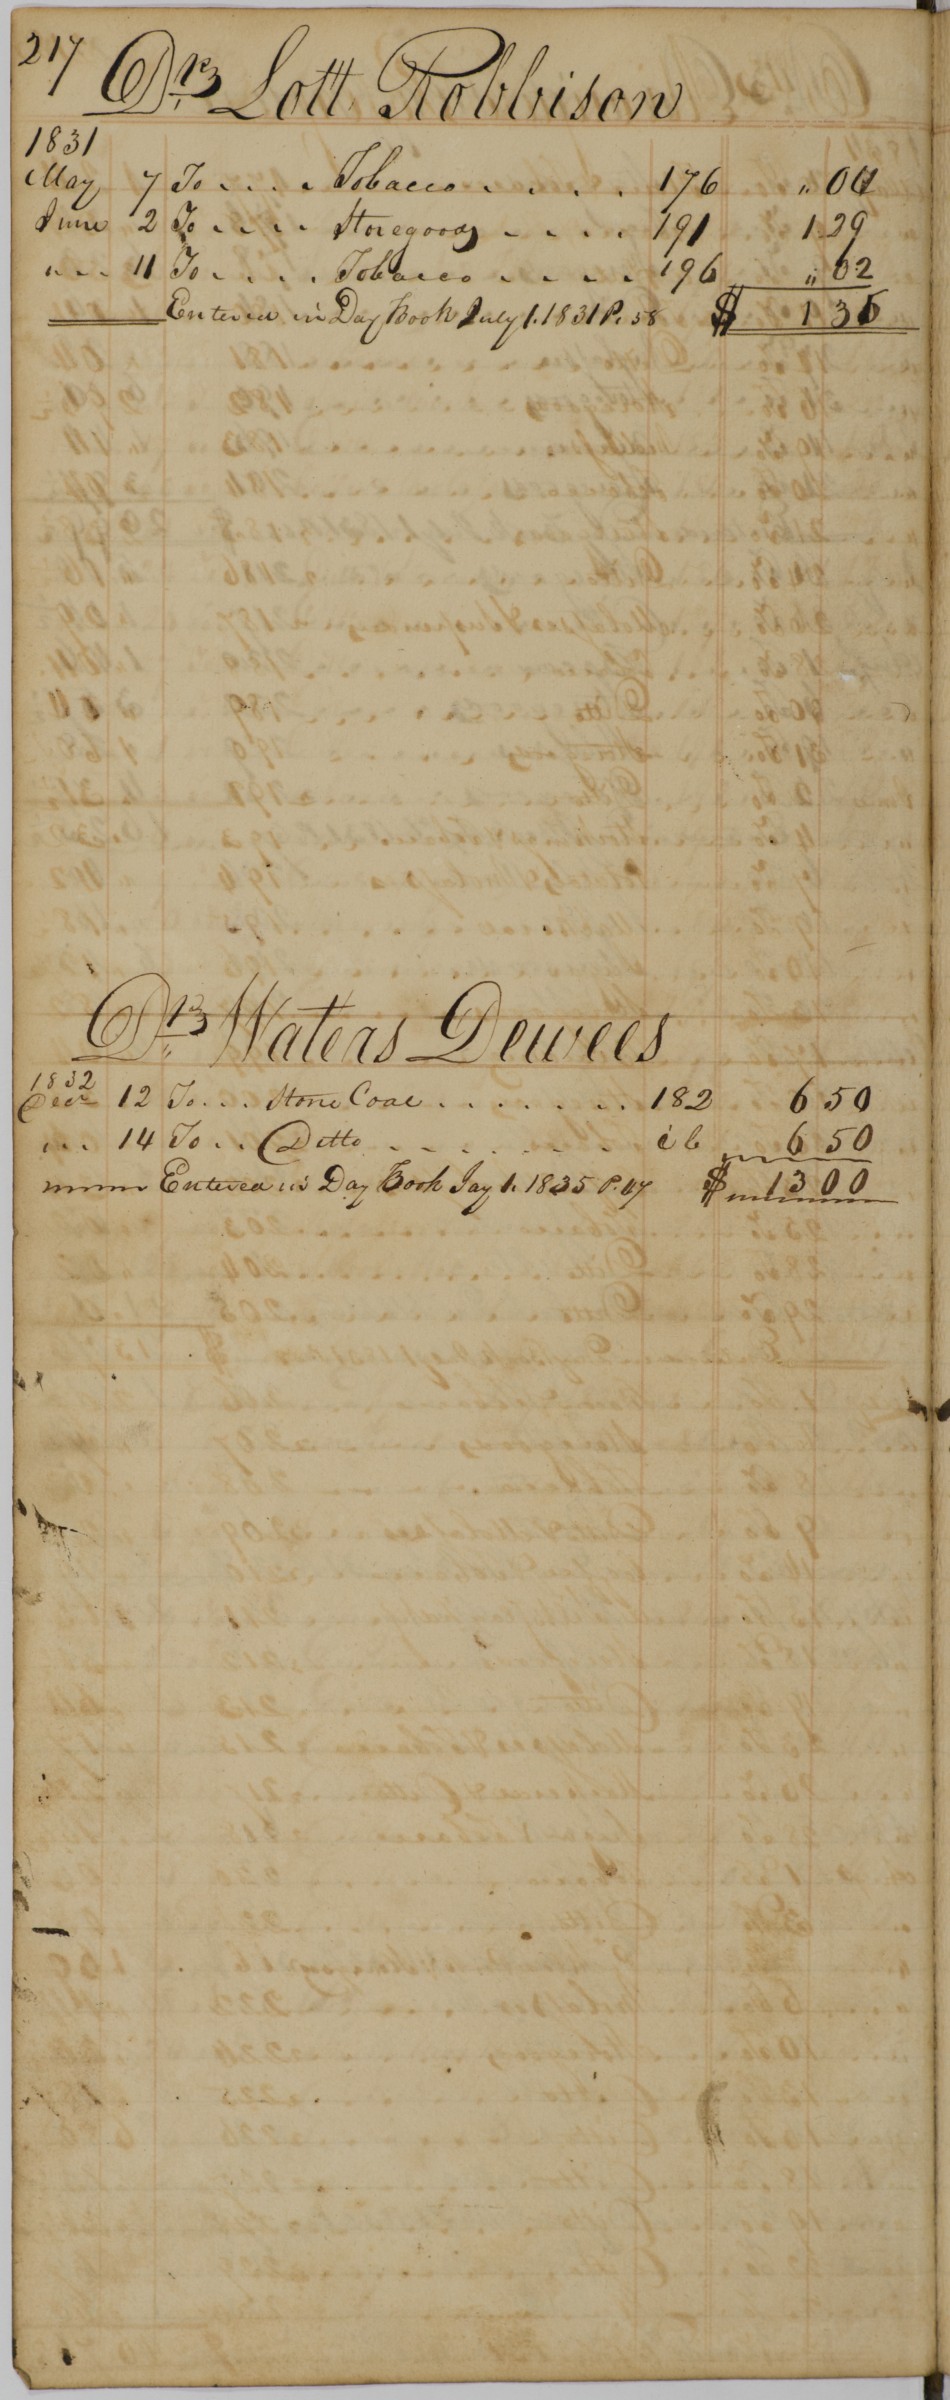 217
Dr. Lott Robbison
1831
May 7 To . . . . Tobacco . . . . . 176 " 04
June 2 To . . . . Storegoods . . . . 191 1 29
" . . 11 To . . . . Tobacco . . . . . 196 " 02
Entered in Day Book July 1. 1831 P. 58 $ 1 35
Dr. Waters Dewees
1832
Decr 12 To . . . Stone Coal . . . . . . . 182 6 50
" . . 14 To . . Ditto . . . . . . . ib 6 50
Entered in Day Book Jay 1. 1835 P. 47 $ 13 00